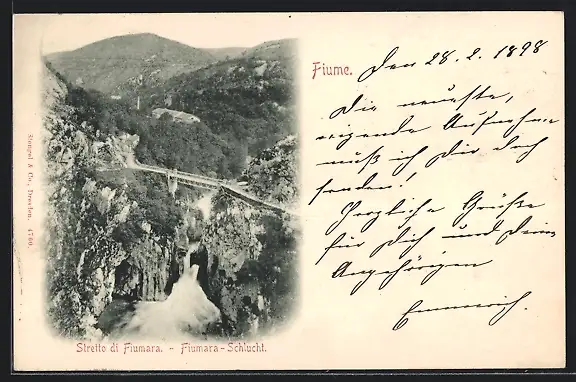 Fiume. Den 28. 2. 1898
Die neuste,
eigende Aufnahme
muß ich Dir doch
senden!
Herzliche Grüße
für Dich und Deine
Angehörigen
Emmerich.
Stengel & Co., Dresden. 4760.
Stretto di Fiumara. - Fiumara-Schlucht.